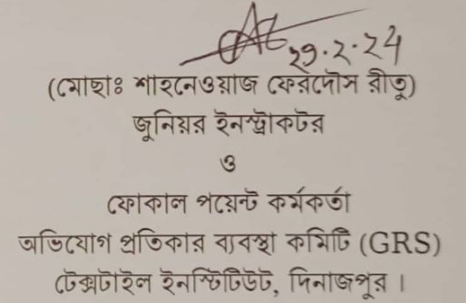 ২৯.২.২৪
(মোছাঃ শাহনেওয়াজ ফেরদৌস রীতু)
জুনিয়র ইনস্ট্রাকটর
ও
ফোকাল পয়েন্ট কর্মকর্তা
অভিযোগ প্রতিকার ব্যবস্থা কমিটি (GRS)
টেক্সটাইল ইনস্টিটিউট, দিনাজপুর।